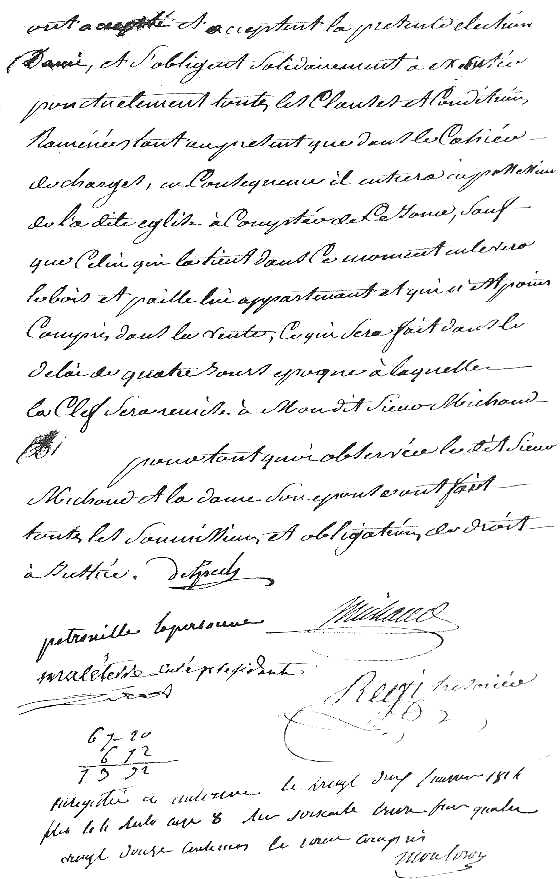 ont accepté et acceptent la presente election
Damie, et s'obligent solidairement à executée
ponctuelement toute, les Clauses et Condition,
Ramenées tant au present que dans le Cahiée
de charges, en Consequence il entrera en possession
de la dite eglise à Comptée de Ce Jour, Sauf
que Celui qui la tient dans Ce moment enlevera
le bois et paille lui appartenant et qui n'est point
Compris, dans la vente, Ce qui sera fait dans le
delai de quatre Jours epoque à laquelle
la Clef sera remise à Mondit Sieur Michaud
pour tout quoi observée les dit Sieur
Michaud et la dame son epouse ont fait
toute, les soumission, et obligation, de droit
à Justice.
petronille lapersonne Michaud
malétete curé president
Regi tresoriée
67 20
6 72
73 92
enregistré a le vingt janvier
fol 8 soixante treize franc quatre
vingt douze centimes le compris